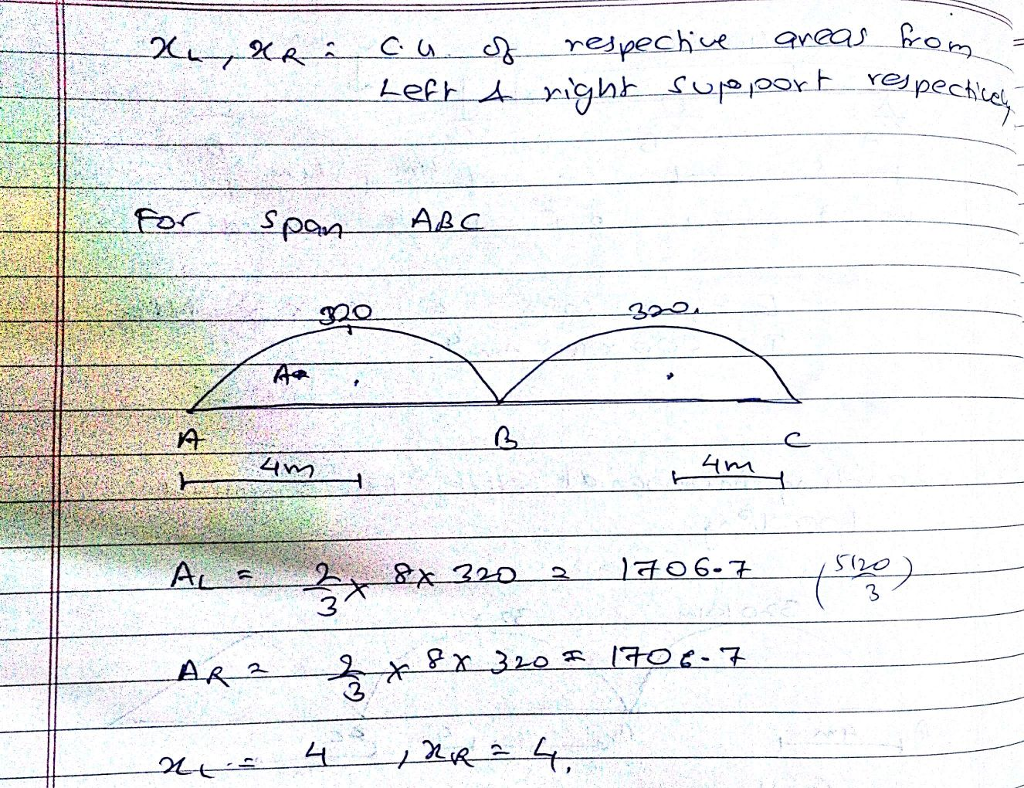 xL, xR = C.G. of respective areas from
Left & right support respectively
For span ABC
320 320.
A
A B C
4m 4m
AL = 2/3 x 8x 320 = 1706.7 (5120/3)
AR = 2/3 x 8x 320 = 1706.7
xL = 4, xR = 4.